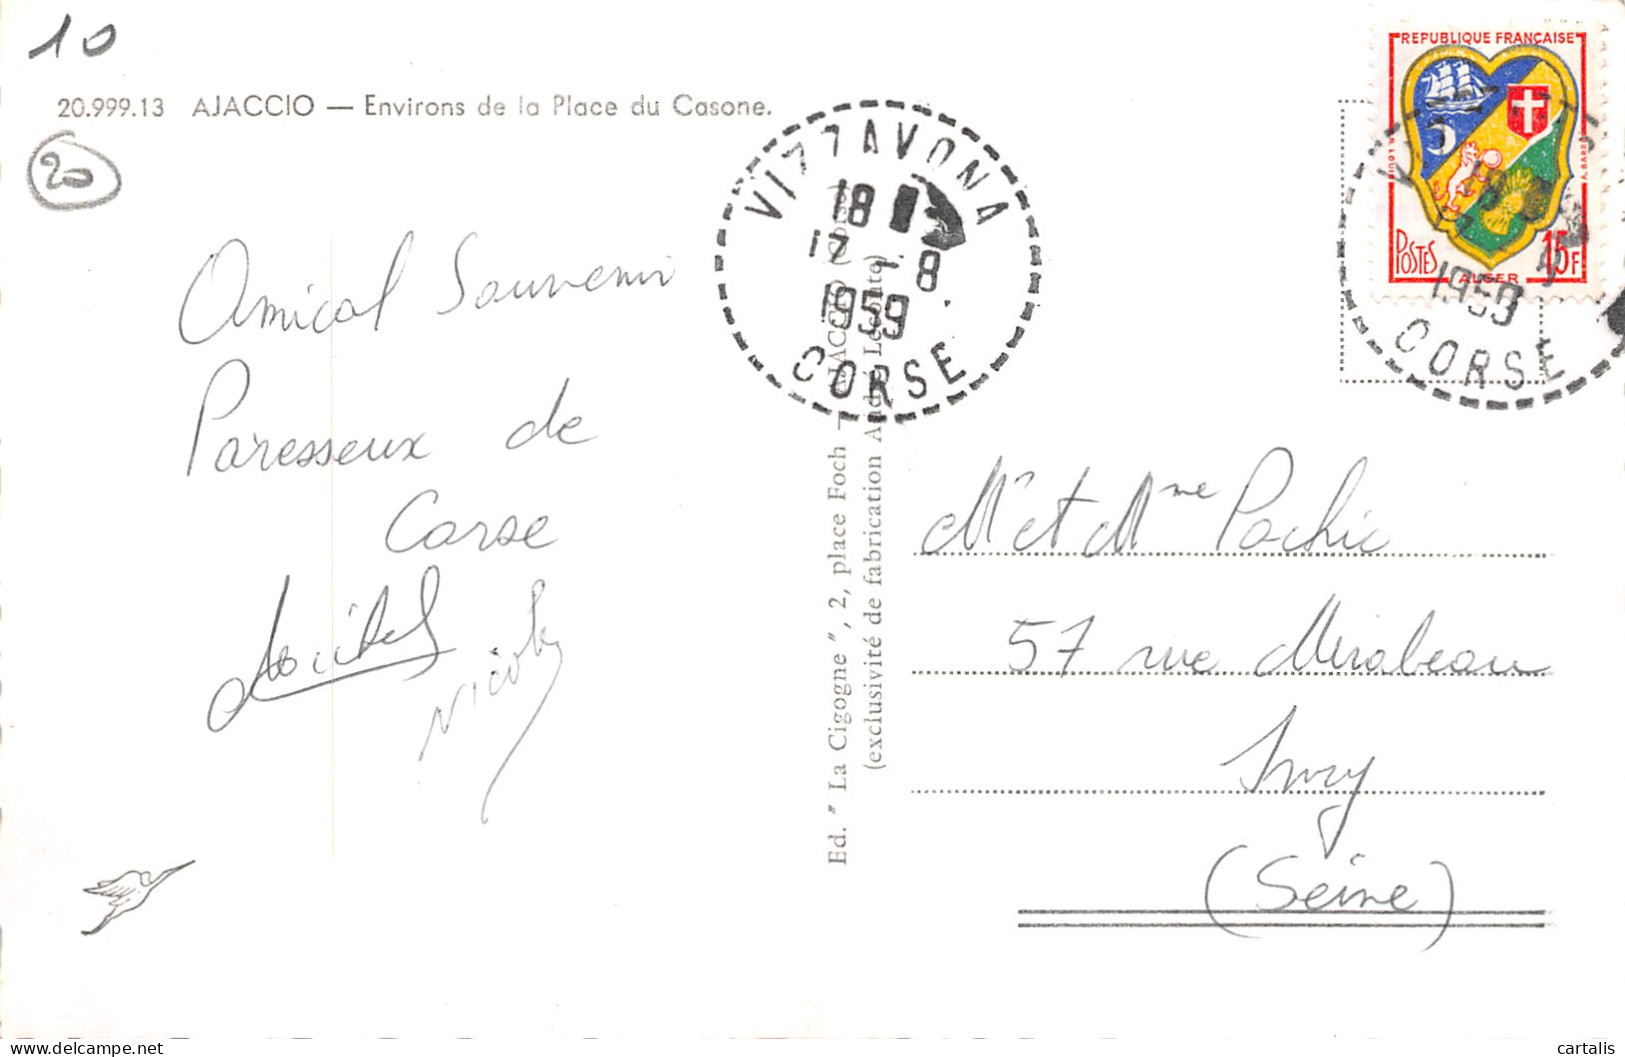 10
20.999.13 AJACCIO — Environs de la Place du Casone.
20
Amical Souvenir
Paresseux de
Corse
Nicole
Ed. " La Cigogne ", 2, place Foch — AJACCIO
(exclusivité de fabrication André Leconte)
VIZZAVONA
18
17 - 8
1959
CORSE
REPUBLIQUE FRANÇAISE
POSTES
ALGER
15F
1959
CORSE
Mr et Mme Pochic
57 rue Mirabeau
Ivry
(Seine)
cartalis